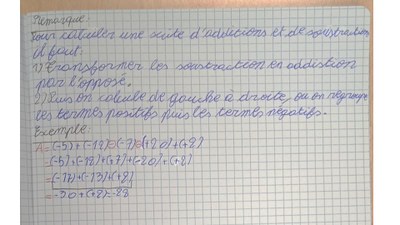 Remarque:
Pour calculer une suite d'additions et de soustraction
il faut.
1) Transformer les soustraction en addition
par l'opposé.
2) Puis on calcule de gauche à droite, ou on regroupe
les termes positifs puis les termes négatifs.
Exemple:
A=(-5)+(-12)-(-7)-(+20)+(+2)
=(-5)+(-12)+(+7)+(-20)+(+2)
=(-17)+(-13)+(+2)
=-30+(+2)=-28